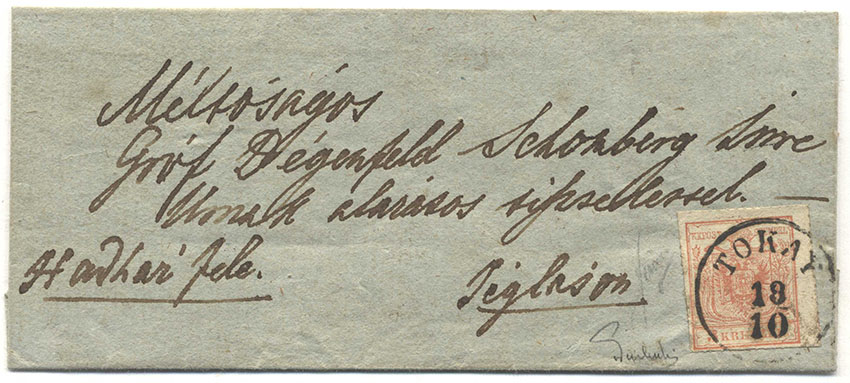 Méltóságos
Gróf Dégenfeld Schonberg Imre
Urnak alázatos tisztelettel. —
Hadhaz fele.
Tégláson
TOKAY
18
10
KREU